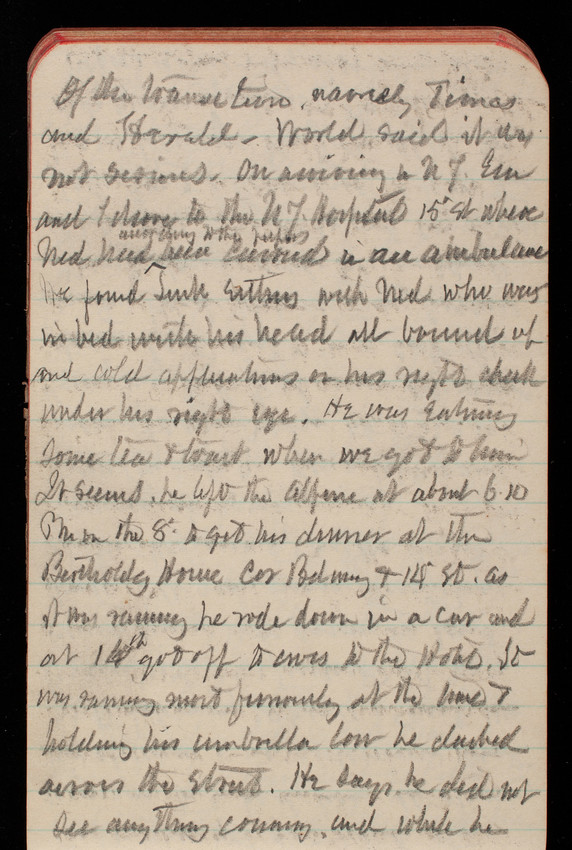 Of the transaction, namely Times
and Herald - World said it was
not serious. On arriving in N.Y. Em
and I drove to the N.Y. Hospital 15 St where
according to the papers
Ned had been carried in an ambulance
We found Tunk sitting with Ned who was
in bed with his head all bound up
and cold applications on his right cheek
under his right eye. He was eating
some tea & toast when we got to him
It seems he left the at about 6.10
PM on the 8 to get his dinner at the
House Cor Bdway & 14 St. as
it was raining he rode down in a car and
at 14th got off to cross to the Hotel. It
was raining most furiously at the time &
holding his umbrella low he dashed
across the street. He says he did not
see anything coming, and while he